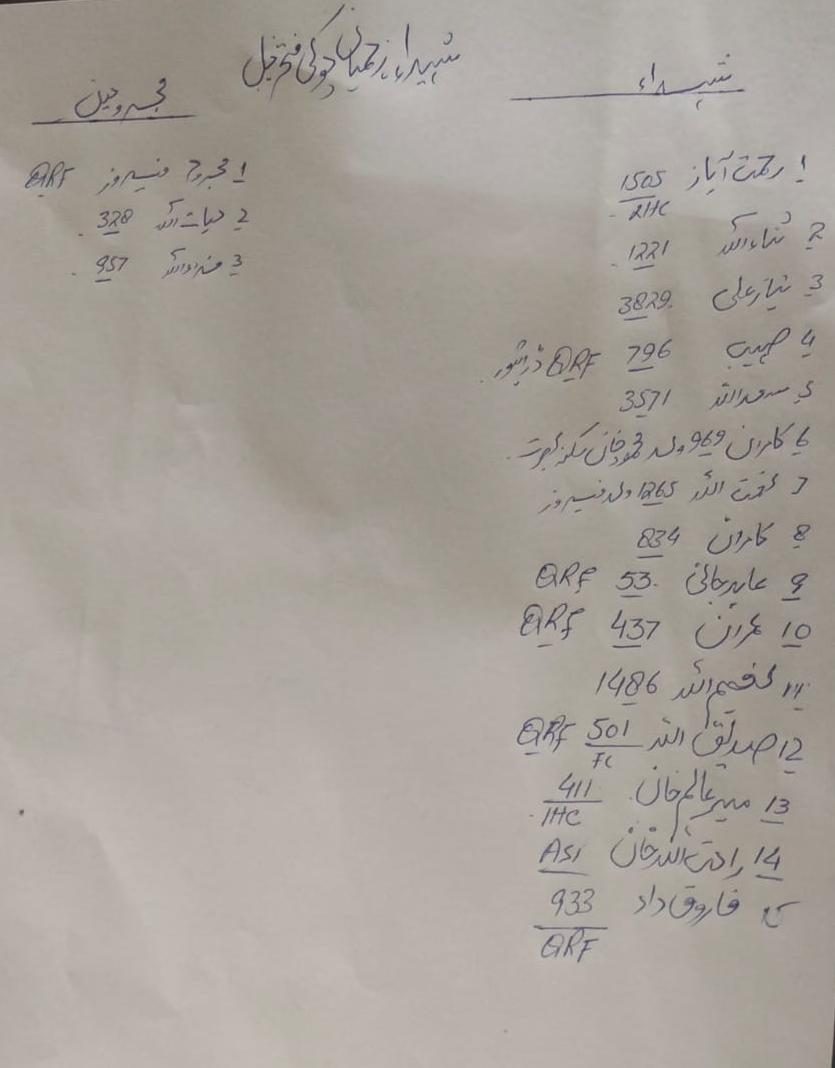 شہداء زخمیان چوکی فتح خیل
شہداء
1 رحمت آیاز 1505/LHC
2 ثناء اللہ 1221
3 نیاز علی 3829
4 صہیب 796 QRF ڈرائیور
5 سعد اللہ 3571
6 کامران 969 ولد محمود خان سکنہ
7 نعمت اللہ 1265 ولد فیروز
8 کامران 834
9 عابد جانی 53 QRF
10 عمران 437 QRF
11 نعیم اللہ 1486
12 صدیق اللہ 501/FC QRF
13 میر عالم خان 411/IHC
14 راحت اللہ خان ASI
15 فاروق داد 933/QRF
مجروحین
1 مجروح فیروز QRF
2 حیات اللہ 328
3 957